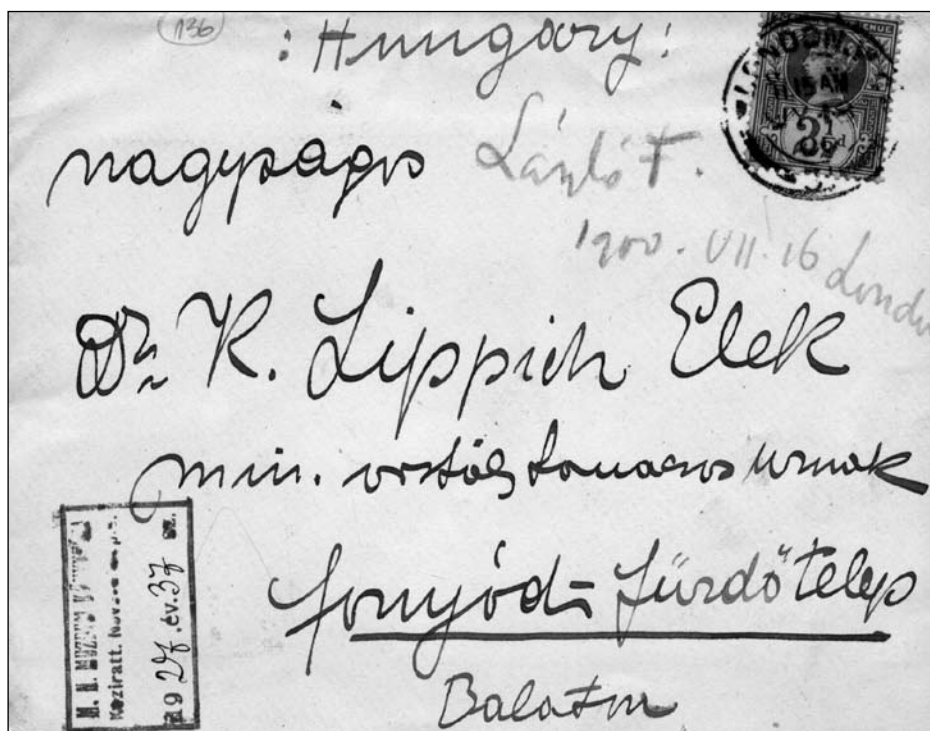 136
: Hungary :
LONDON
15 AM
2½d
nagyságos László F.
1900. VII. 16 London
Dr. K. Lippich Elek
min. osztálytanácsos úrnak
Fonyód- fürdőtelep
Balaton
M. N. MUZEUM
Kéziratt. Növ
19 27 .év. 37 sz.